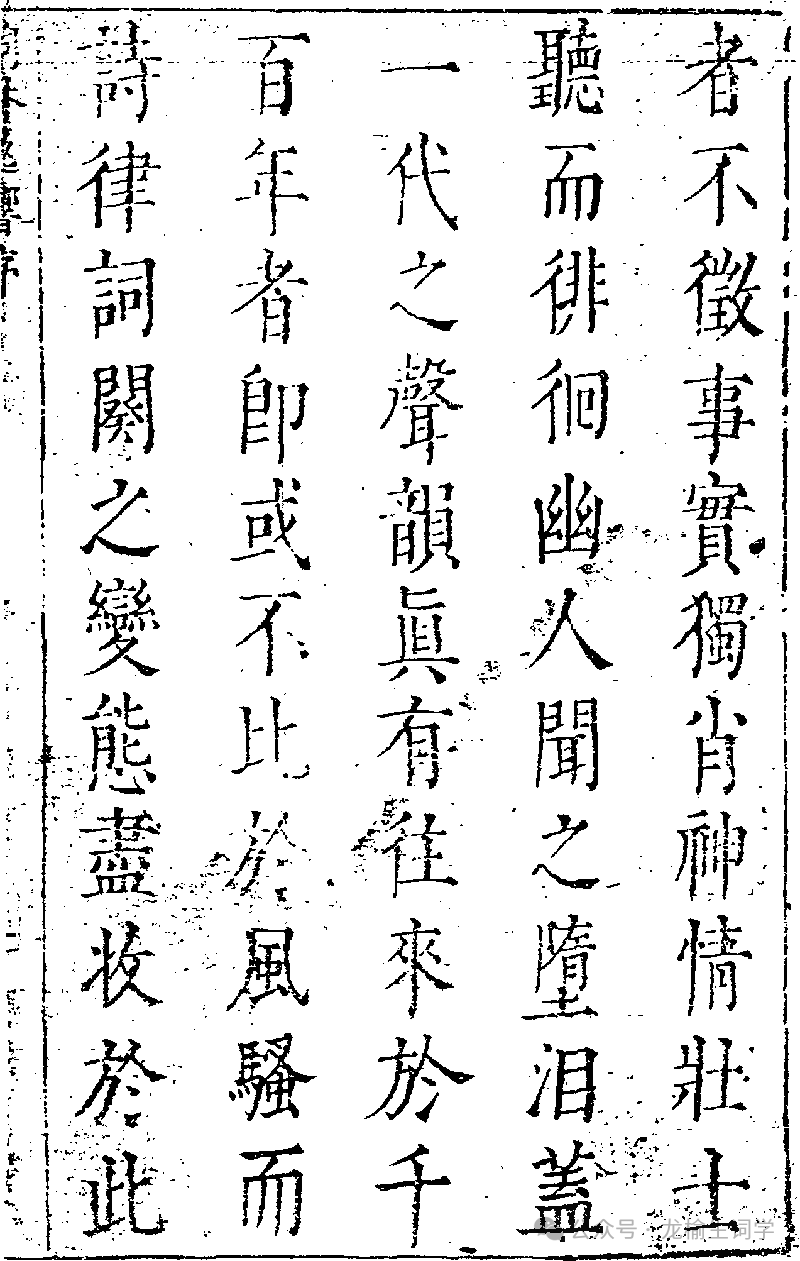 者不徵事實獨肖神情壯士
聽而徘徊幽人聞之墮泪蓋
一代之聲韻眞有往來於千
百年者卽或不比於風騷而
詩律詞闋之變態盡收於此
公众号·龙榆生词学